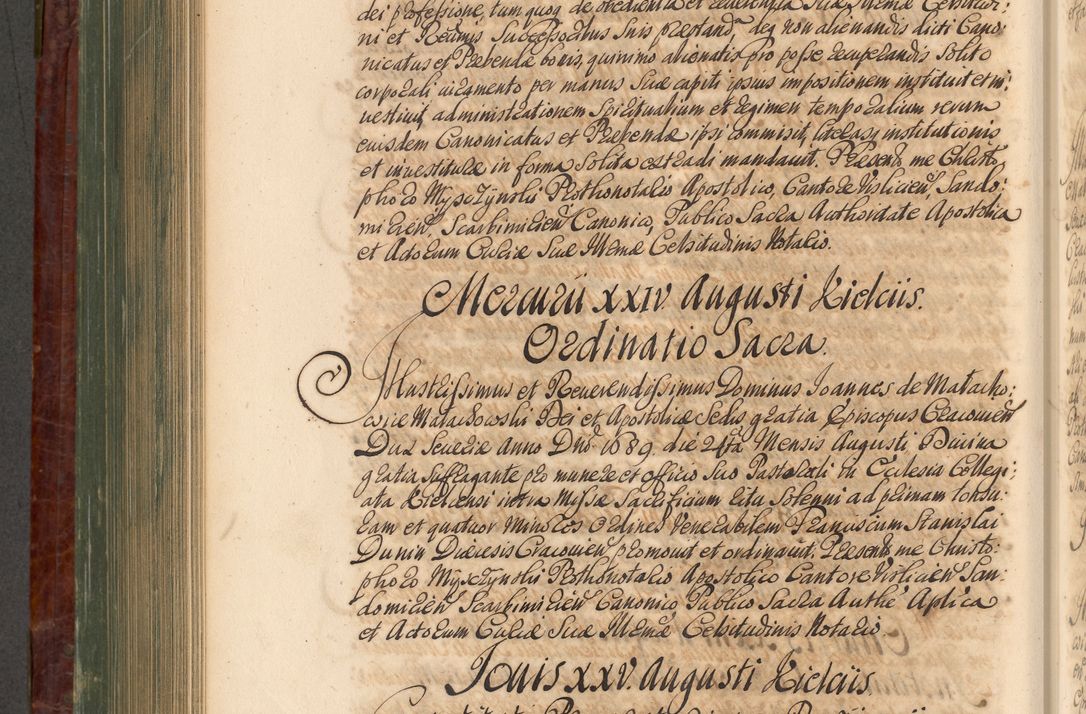 dei professione, tum quoq de obedientia et reverentia Suæ Illmæ Celsitudi:
ni et Rndmis Successoribus Suis præstand, deq non alienandis dicti Cano:
nicatus et Præbendæ bonis, quinimo alienatis pro posse recuperandis solito
corporali iuramento per manus suæ capiti ipsius impositionem instituit et in:
vestivit administrationem Spiritualium et regimen temporalium rerum
euisdem Canonicatus et Præbendæ ipsi commisit, literasq institutionis
et investituræ in forma solita extradi mandavit. Præsente me Christo
phoro Myszynski Prothonotario Apostolico, Cantore Vislicien, Sando:
mirien, Scarbimirien Canonico, Publico Sacra Authoritate Apostolica
et Actorum Curiæ Suæ Illmæ Celsitudinis Notario.
Mercurii XXIV Augusti Kielciis.
Ordinatio Sacra.
Illustrissimus et Reverendissimus Dominus Joannes de Małacho:
wice Małachowski Dei et Apostolicæ Sedis gratia Episcopus Cracovien
Dux Severiæ Anno Dni 1689. die 24ta Mensis Augusti Divina
gratia suffragante pro munere et officio suo Pastorali in Ecclesia Collegi:
ata Kielcensi intra Missæ Sacrificium ritu solenni ad primam tonsu:
ram et quatuor Minores Ordines Venerabilem Franciscum Stanislai
Dunin Diæcesis Cracovien promovit et ordinavit. Præsente me Christo:
phoro Myszynski Prothonotario Apostolico Cantore Vislicien San:
domirien Scarbimirien Canonico Publico Sacra Authe Aplica
et Actorum Curiæ Suæ Illmæ Celsitudinis Notario.
Jovis XXV. Augusti Kielciis